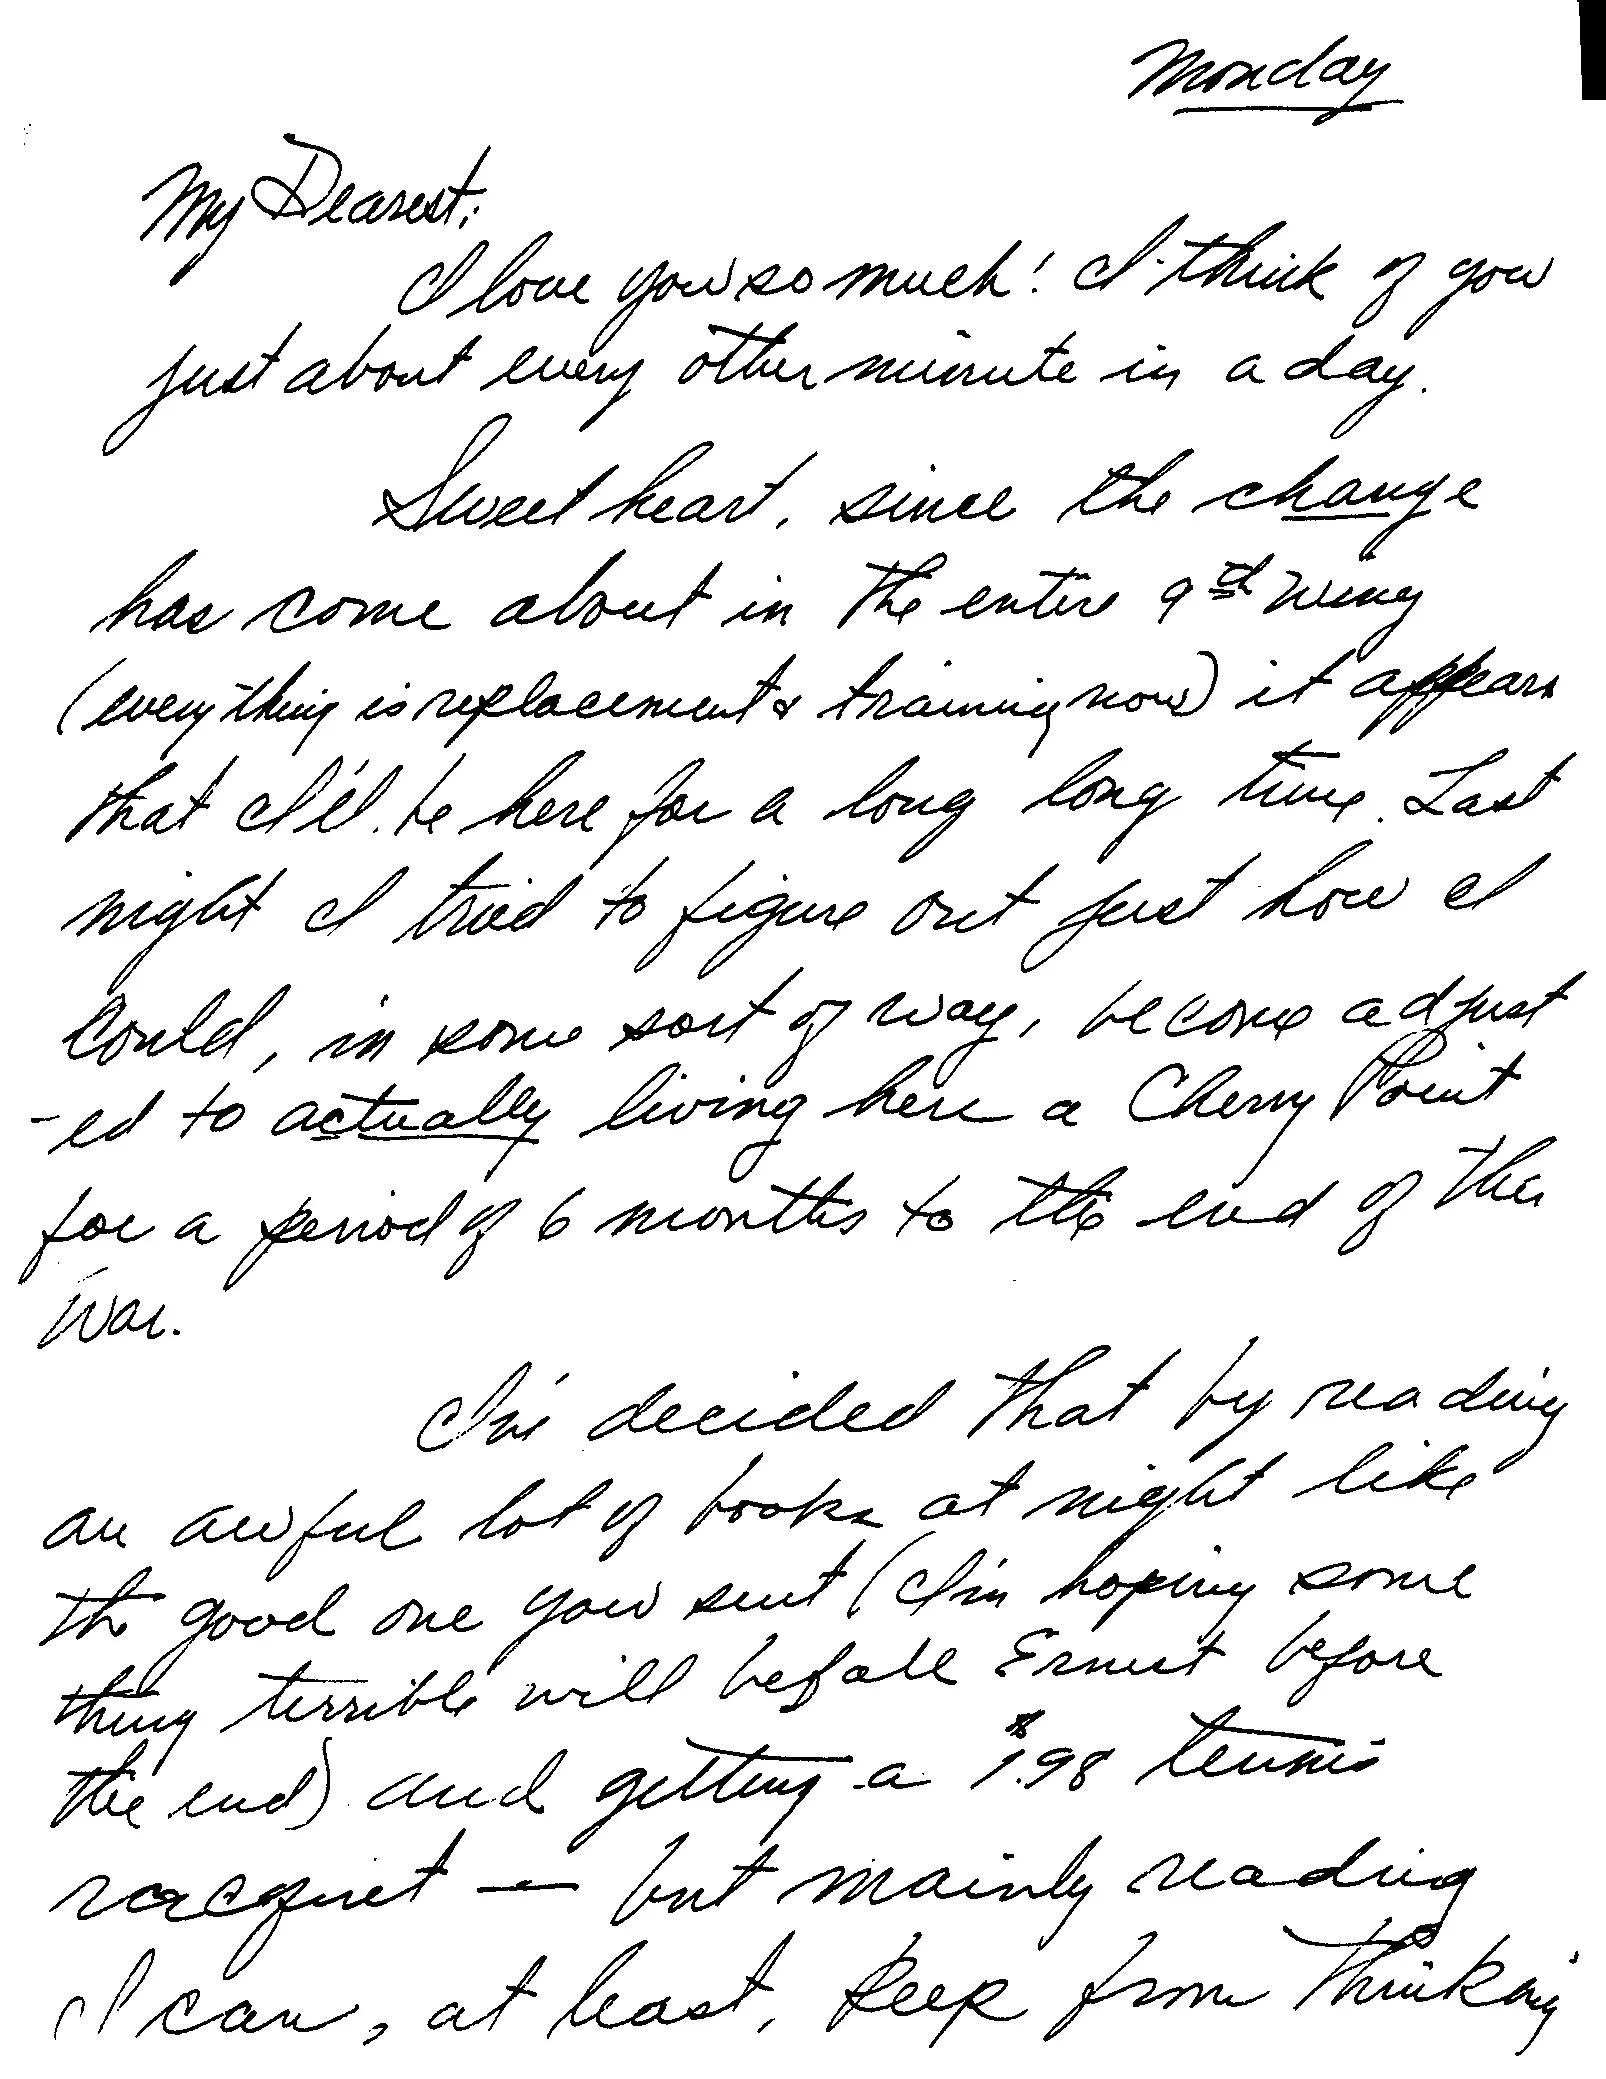 Monday
My Dearest:
I love you so much! I think of you
just about every other minute in a day.
Sweetheart, since the change
has come about in the entire 9th Wing
(everything is replacement & training now) it appears
that I'll be here for a long long time. Last
night I tried to figure out just how I
could, in some sort of way, become adjust
-ed to actually living here a Cherry Point
for a period of 6 months to the end of the
War.
I've decided that by reading
an awful lot of books at night like
the good one you sent (I'm hoping some
thing terrible will befall Ernest before
the end) and getting a $1.98 tennis
racquet — but mainly reading
I can, at least, keep from thinking